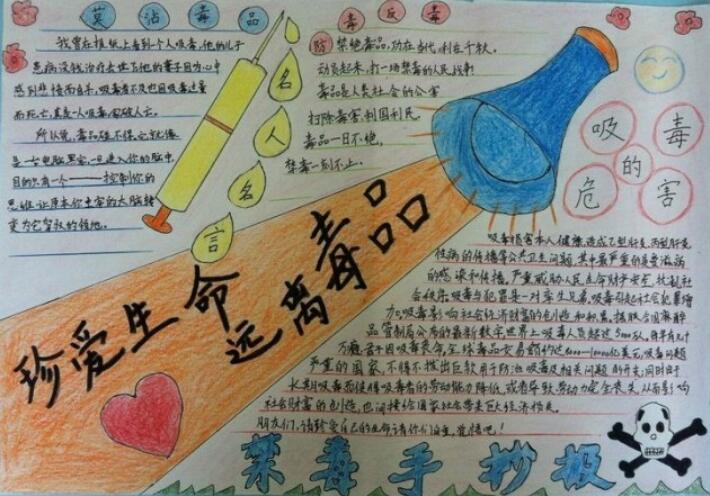 莫沾毒品
我曾在报纸上看到一个人吸毒，他的儿子
患病没钱治疗去世了他的妻子因为心中
感到悲愤而自杀，吸毒者不及也因吸毒过量
而死亡，真是一人吸毒，家破人亡。
所以说，毒品碰不得，它就像
是一台电脑黑客，一旦进入你的脑中，
目的只有一个——控制你的
思维，让原本你丰富的大脑转
变为它贫瘠的领地。
名人名言
毒反毒
防 禁绝毒品，功在当代，利在千秋。
动员起来，打一场禁毒的人民战争！
毒品是人类社会的公害
扫除毒害，利国利民。
毒品一日不绝，
禁毒一刻不止。
吸毒的危害
珍爱生命
远离毒品
吸毒损害本人健康，造成乙型肝炎、丙型肝炎
性病的传播等公共卫生问题，其中最严重的是艾滋病
的感染和传播，严重威胁人民生命财产安全，扰乱社
会秩序，吸毒与犯罪是一对孪生兄弟，吸毒引起社会犯罪增
加。吸毒影响社会经济财富的创造和积累，据联合国麻醉
品管制局公布的最新数字，世界上吸毒人员超过5000万，每年有几十
万瘾君子因吸毒丧命，全球毒品交易额约达8000—10000亿美元，吸毒问题
严重的国家，不得不拨出巨款用于防治吸毒及相关问题的开支；同时由于
长期吸毒而使得吸毒者的劳动能力降低，或者导致劳动力完全丧失，从而影响
社会财富的创造，也间接给国家社会带来巨大经济损失。
朋友们，请珍爱自己的生命，请你们
禁毒手抄报